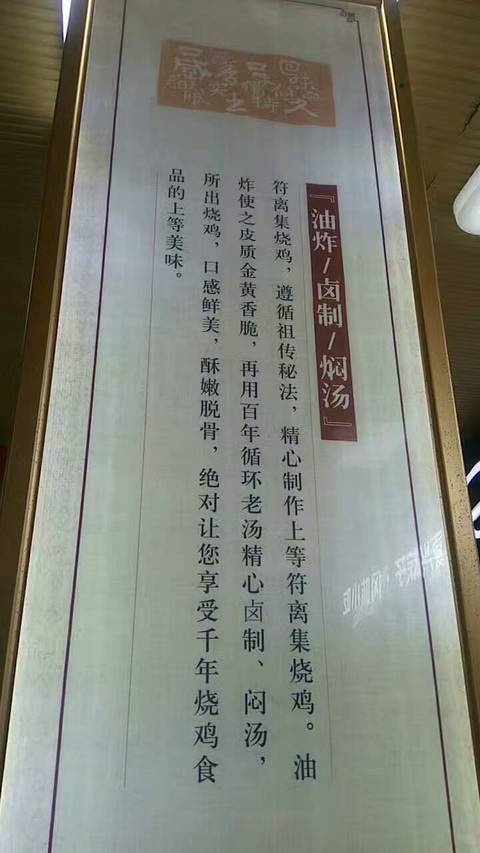 『油炸/卤制/焖汤』
符离集烧鸡，遵循祖传秘法，精心制作上等符离集烧鸡。油
炸使之皮质金黄香脆，再用百年循环老汤精心卤制、闷汤，
所出烧鸡，口感鲜美，酥嫩脱骨，绝对让您享受千年烧鸡食
品的上等美味。